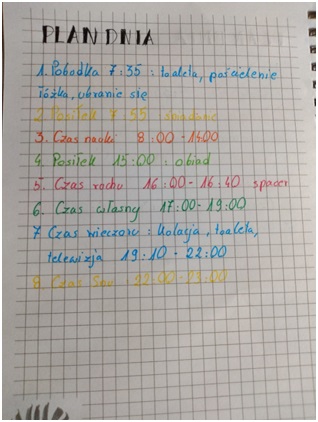 PLAN DNIA
1. Pobudka 7:35 : toaleta, pościelenie
łóżka, ubranie się
2. Posiłek 7:55 śniadanie
3. Czas nauki 8:00 - 14:00
4. Posiłek 15:00 : obiad
5. Czas ruchu 16:00 - 16:40 spacer
6. Czas własny 17:00 - 19:00
7 Czas wieczoru : kolacja, toaleta,
telewizja 19:10 - 22:00
8. Czas Snu 22:00 -